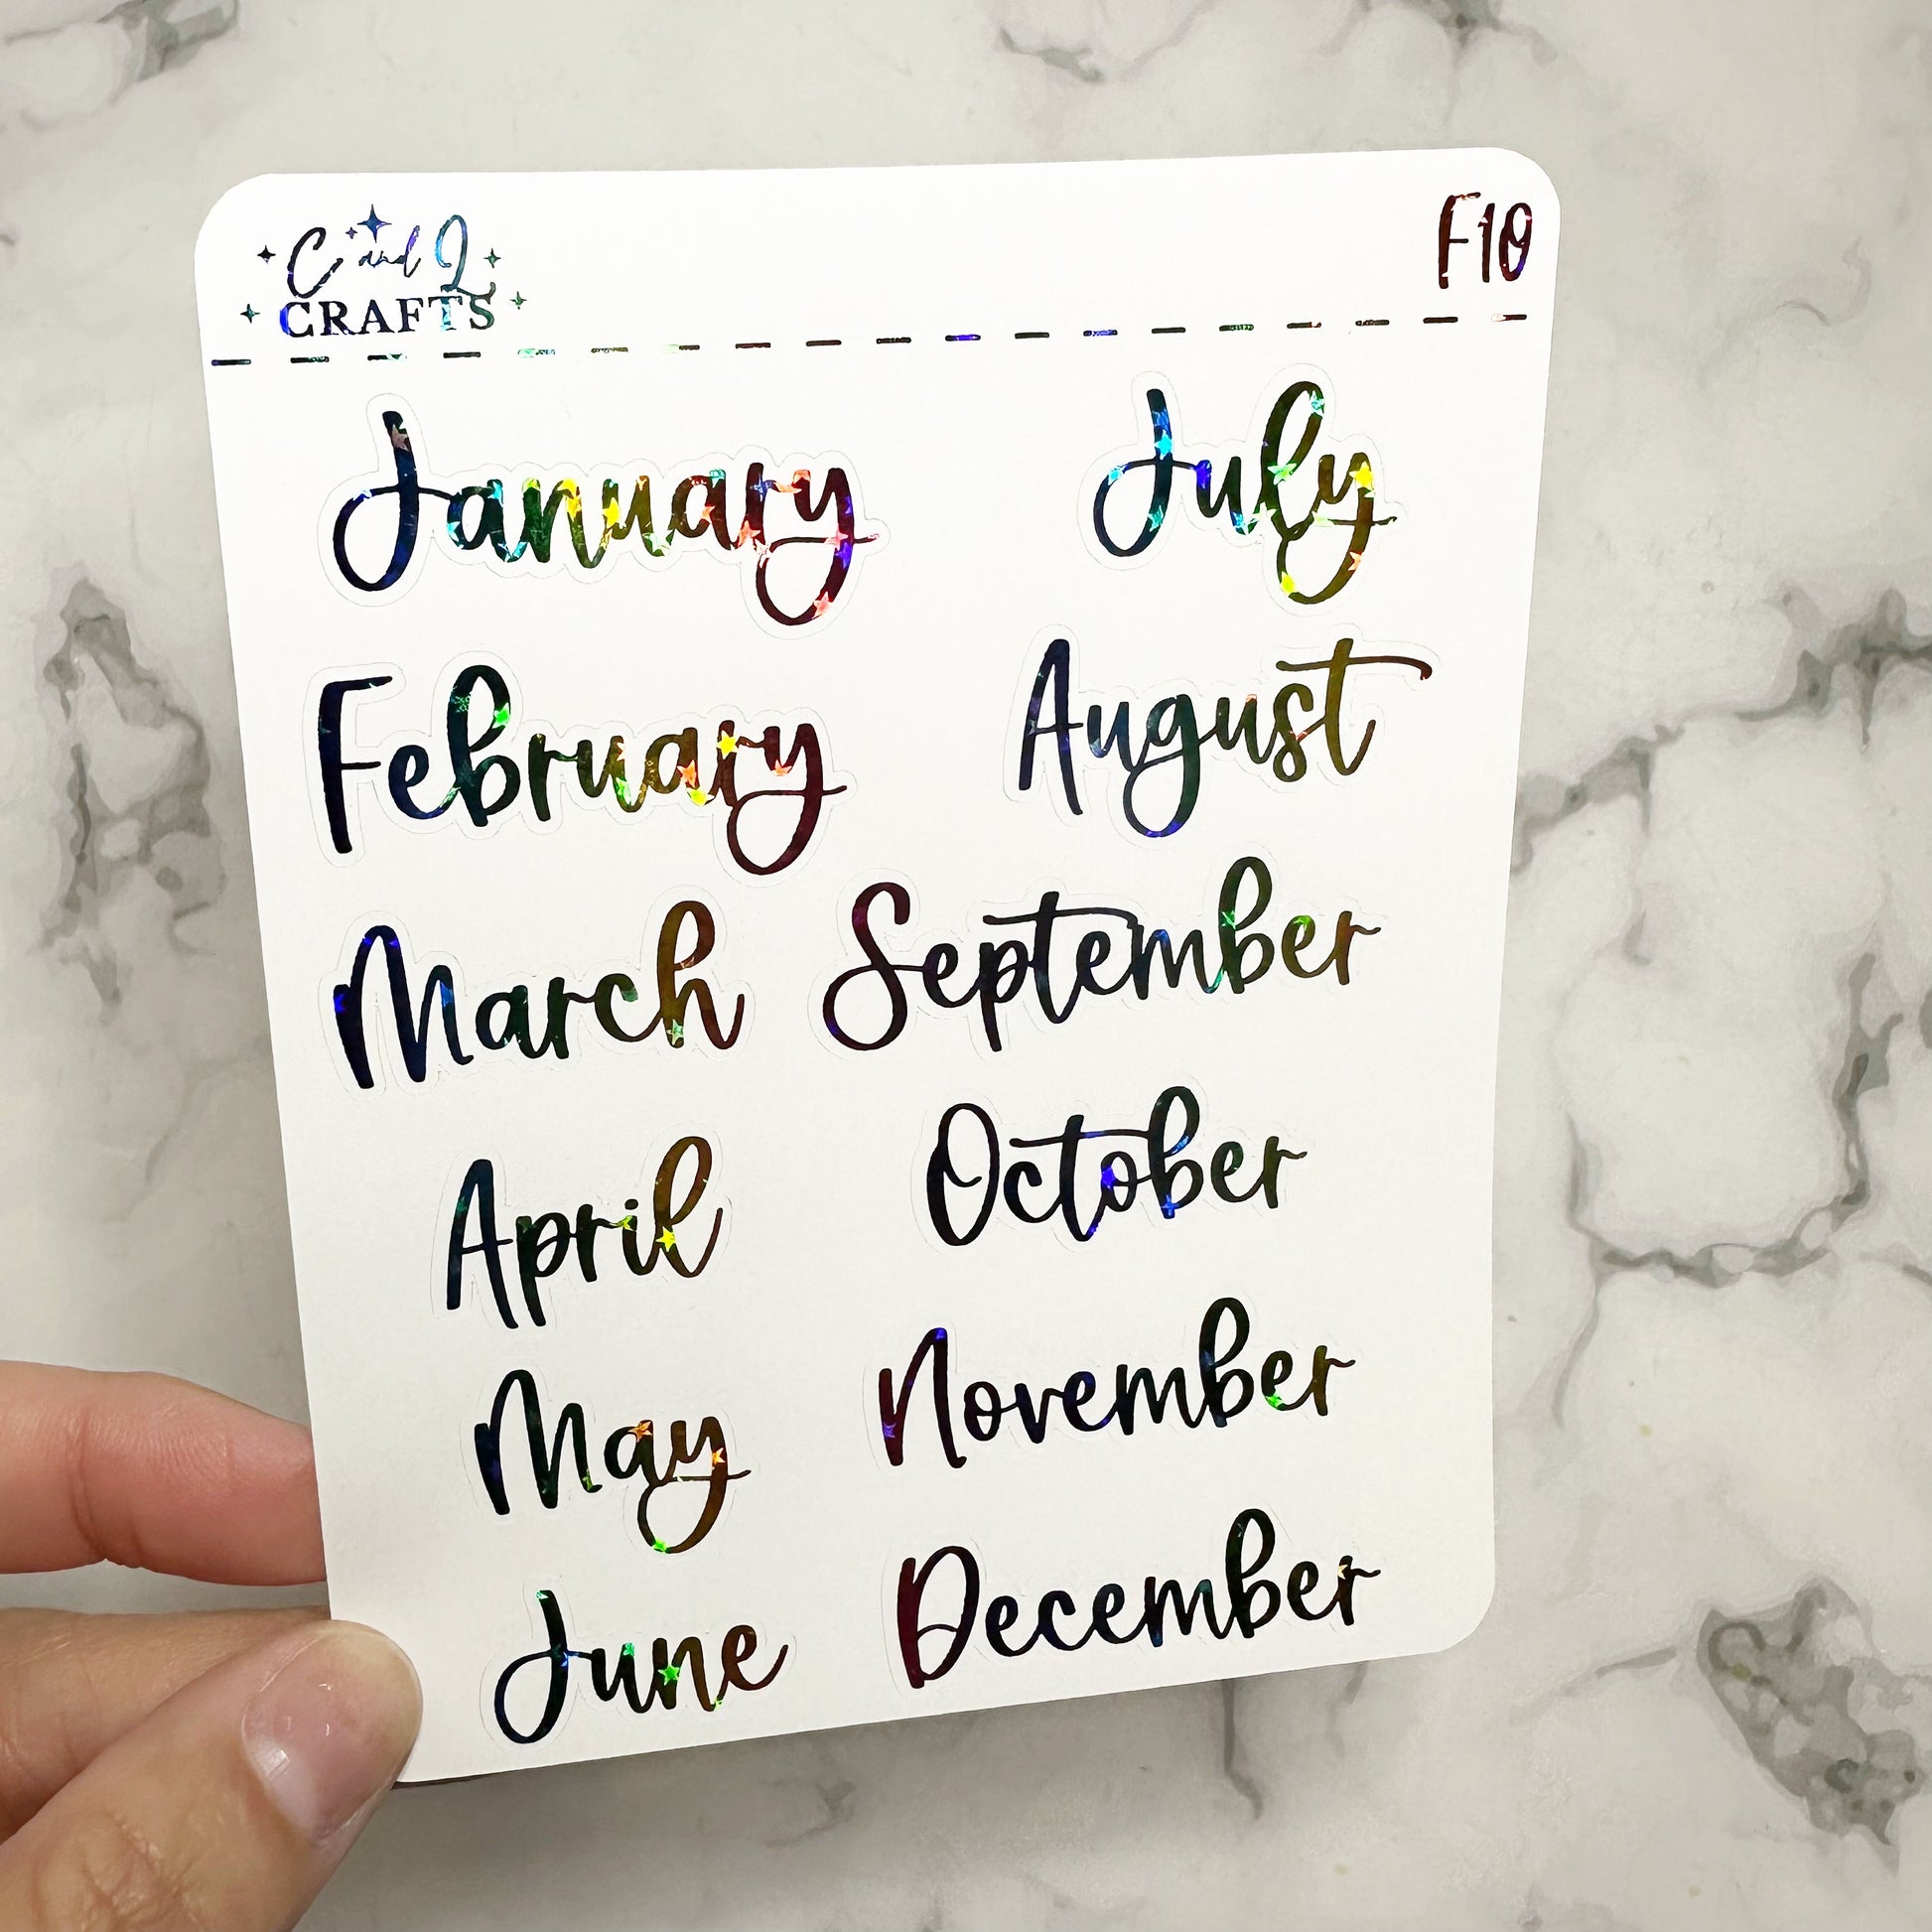 C and L
CRAFTS
F10
January
February
March
April
May
June
July
August
September
October
November
December